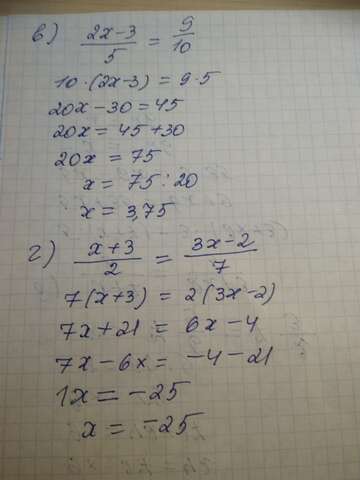 в) (2x-3)/5 = 9/10
10·(2x-3) = 9·5
20x-30 = 45
20x = 45+30
20x = 75
x = 75:20
x = 3,75
г) (x+3)/2 = (3x-2)/7
7(x+3) = 2(3x-2)
7x+21 = 6x-4
7x-6x = -4-21
1x = -25
x = -25